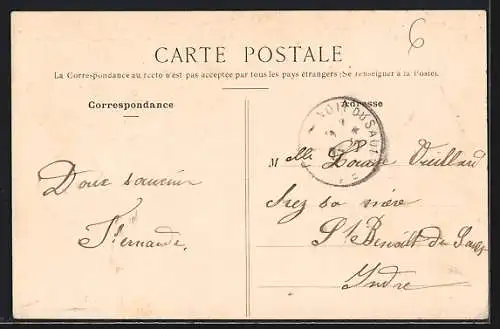 6
CARTE POSTALE
La Correspondance au recto n'est pas acceptée par tous les pays étrangers (Se renseigner à la Poste).
Correspondance
Adresse
NOIT DU SAULT
Doux souvenir
Fernande.
Melle Vieillard
chez sa mère
St Benoît du Sault
Indre